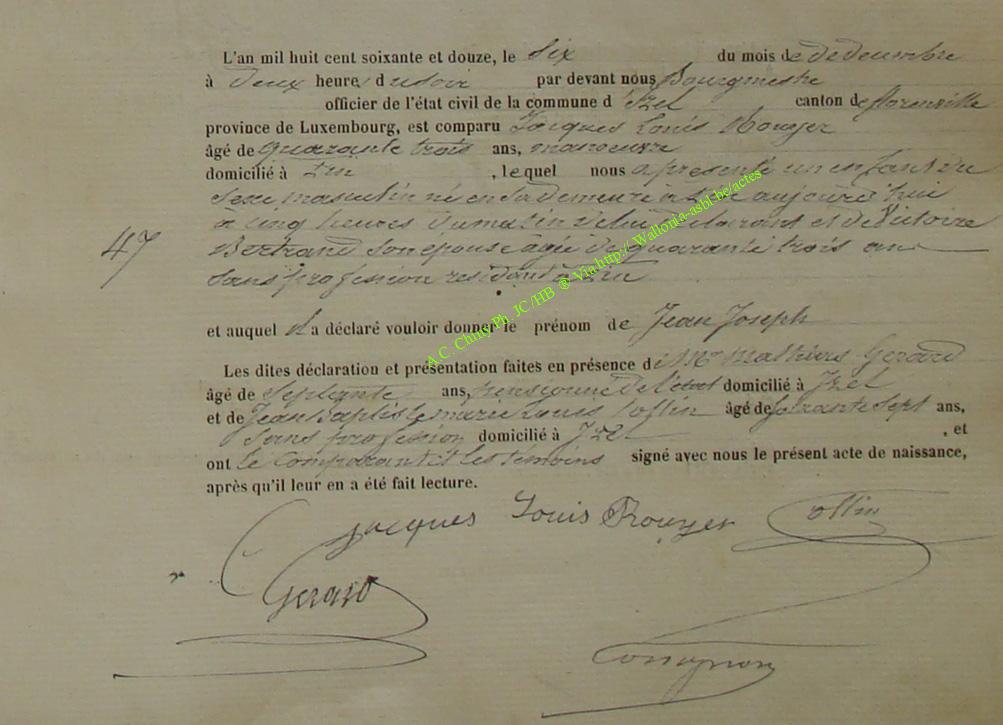 L'an mil huit cent soixante et douze, le Six du mois de dedecembre
à deux heure, du soir par devant nous Bourgmestre
officier de l'état civil de la commune d'Izel canton de florenville
province de Luxembourg, est comparu Jacques Louis Rouyer
âgé de quarante trois ans, manoeuvre
domicilié à , lequel nous a présenté un enfant du
Sexe masculin né en sa demeure à aujourd'hui
à cinq heures du matin de lui déclarant et de Victoire
47 Bertrand son epouse âgée de quarante trois ans
sans profession residant à
et auquel il a déclaré vouloir donner le prénom de Jean Joseph
Les dites déclaration et présentation faites en présence de Mr Mathieus Gerard
âgé de Septente ans, pensionné de l'état domicilié à Izel
et de Jean baptiste marie Louis Collin âgé de soixante sept ans,
Sans profession domicilié à Izel , et
ont le Comparant et les témoins signé avec nous le présent acte de naissance,
après qu'il leur en a été fait lecture.
Jacques Louis Rouyer Collin
Gerard
A.C. Chiny Ph. JC/HB ® Via http:// Wallonia-asbl.be/actes